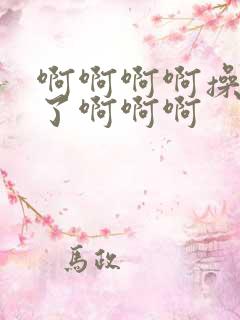 啊啊啊啊操
了啊啊啊
馬政